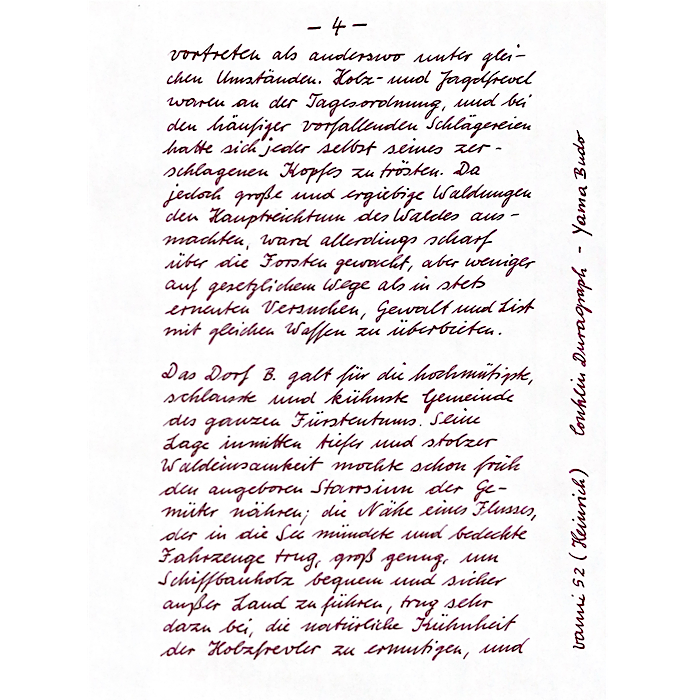 – 4 –
vortreten als anderswo unter glei-
chen Umständen. Holz- und Jagdfrevel
waren an der Tagesordnung, und bei
den häufiger vorfallenden Schlägereien
hatte sich jeder selbst seines zer-
schlagenen Kopfes zu trösten. Da
jedoch große und ergiebige Waldungen
den Hauptreichtum des Waldes aus-
machten, ward allerdings scharf
über die Forsten gewacht, aber weniger
auf gesetzlichem Wege als in stets
erneuten Versuchen, Gewalt und List
mit gleichen Waffen zu überbieten.
Das Dorf B. galt für die hochmütigste,
schlauste und kühnste Gemeinde
des ganzen Fürstentums. Seine
Lage inmitten tiefer und stolzer
Waldeinsamkeit mochte schon früh
den angeboren Starrsinn der Ge-
müter nähren; die Nähe eines Flusses,
der in die See mündete und bedeckte
Fahrzeuge trug, groß genug, um
Schiffbauholz bequem und sicher
außer Land zu führen, trug sehr
dazu bei, die natürliche Kühnheit
der Holzfrevler zu ermutigen, und
vanni 52 (Heinrich) Conklin Duragraph – Yama Budo